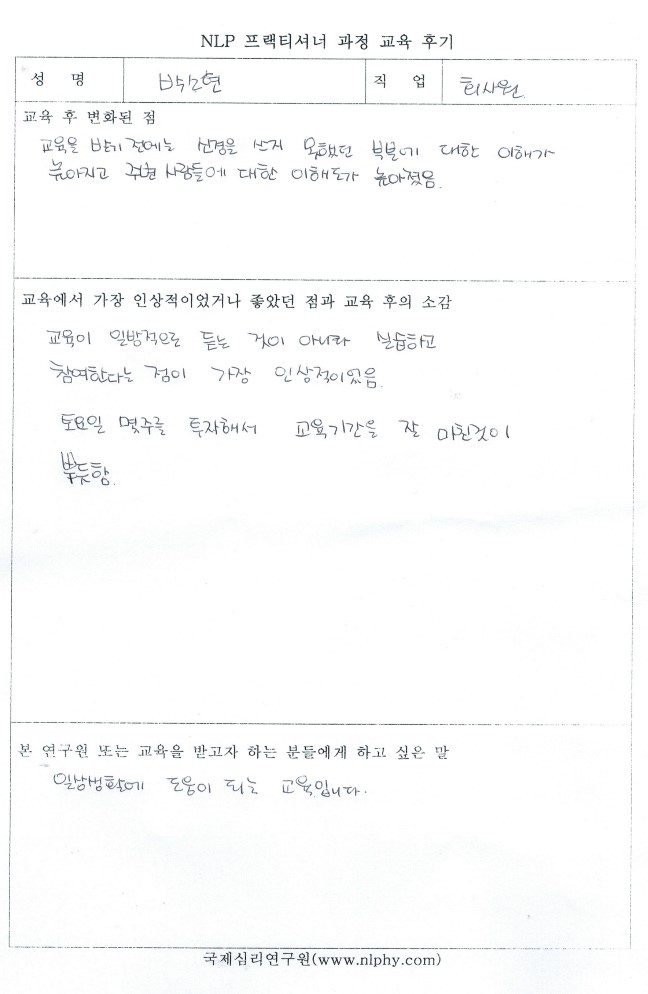 NLP 프랙티셔너 과정 교육 후기
성 명 직 업 회사원
교육 후 변화된 점
교육을 받기 전에는 신경을 쓰지 못했던 부분에 대한 이해가
높아지고 주변 사람들에 대한 이해도가 높아졌음.
교육에서 가장 인상적이었거나 좋았던 점과 교육 후의 소감
교육이 일방적으로 듣는 것이 아니라 실습하고
참여한다는 점이 가장 인상적이었음.
토요일 몇주를 투자해서 교육기간을 잘 마친것이
뿌듯함.
본 연구원 또는 교육을 받고자 하는 분들에게 하고 싶은 말
일상생활에 도움이 되는 교육입니다.
국제심리연구원(www.nlphy.com)